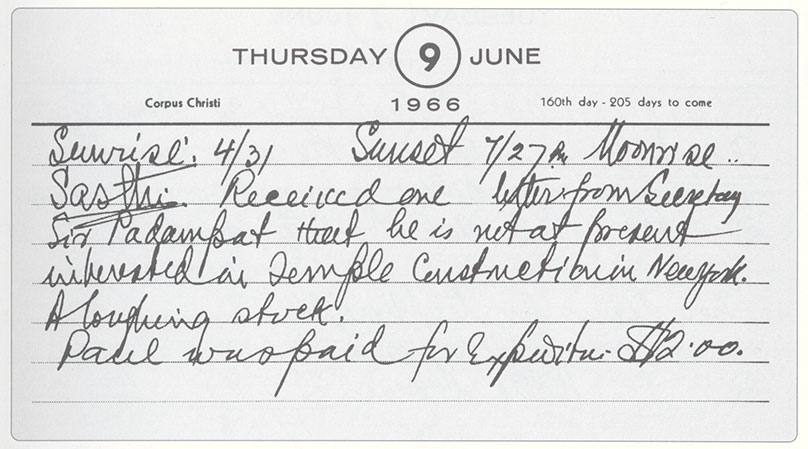 THURSDAY 9 JUNE
Corpus Christi 1966 160th day - 205 days to come
Sunrise: 4/31 Sunset 7/27 Pm Moonrise ..
Sasthi. Received one letter from Secretary
Sir Padampat that he is not at present
interested in Temple Construction in New york.
A loughing stock.
Paul was paid for $2.00.